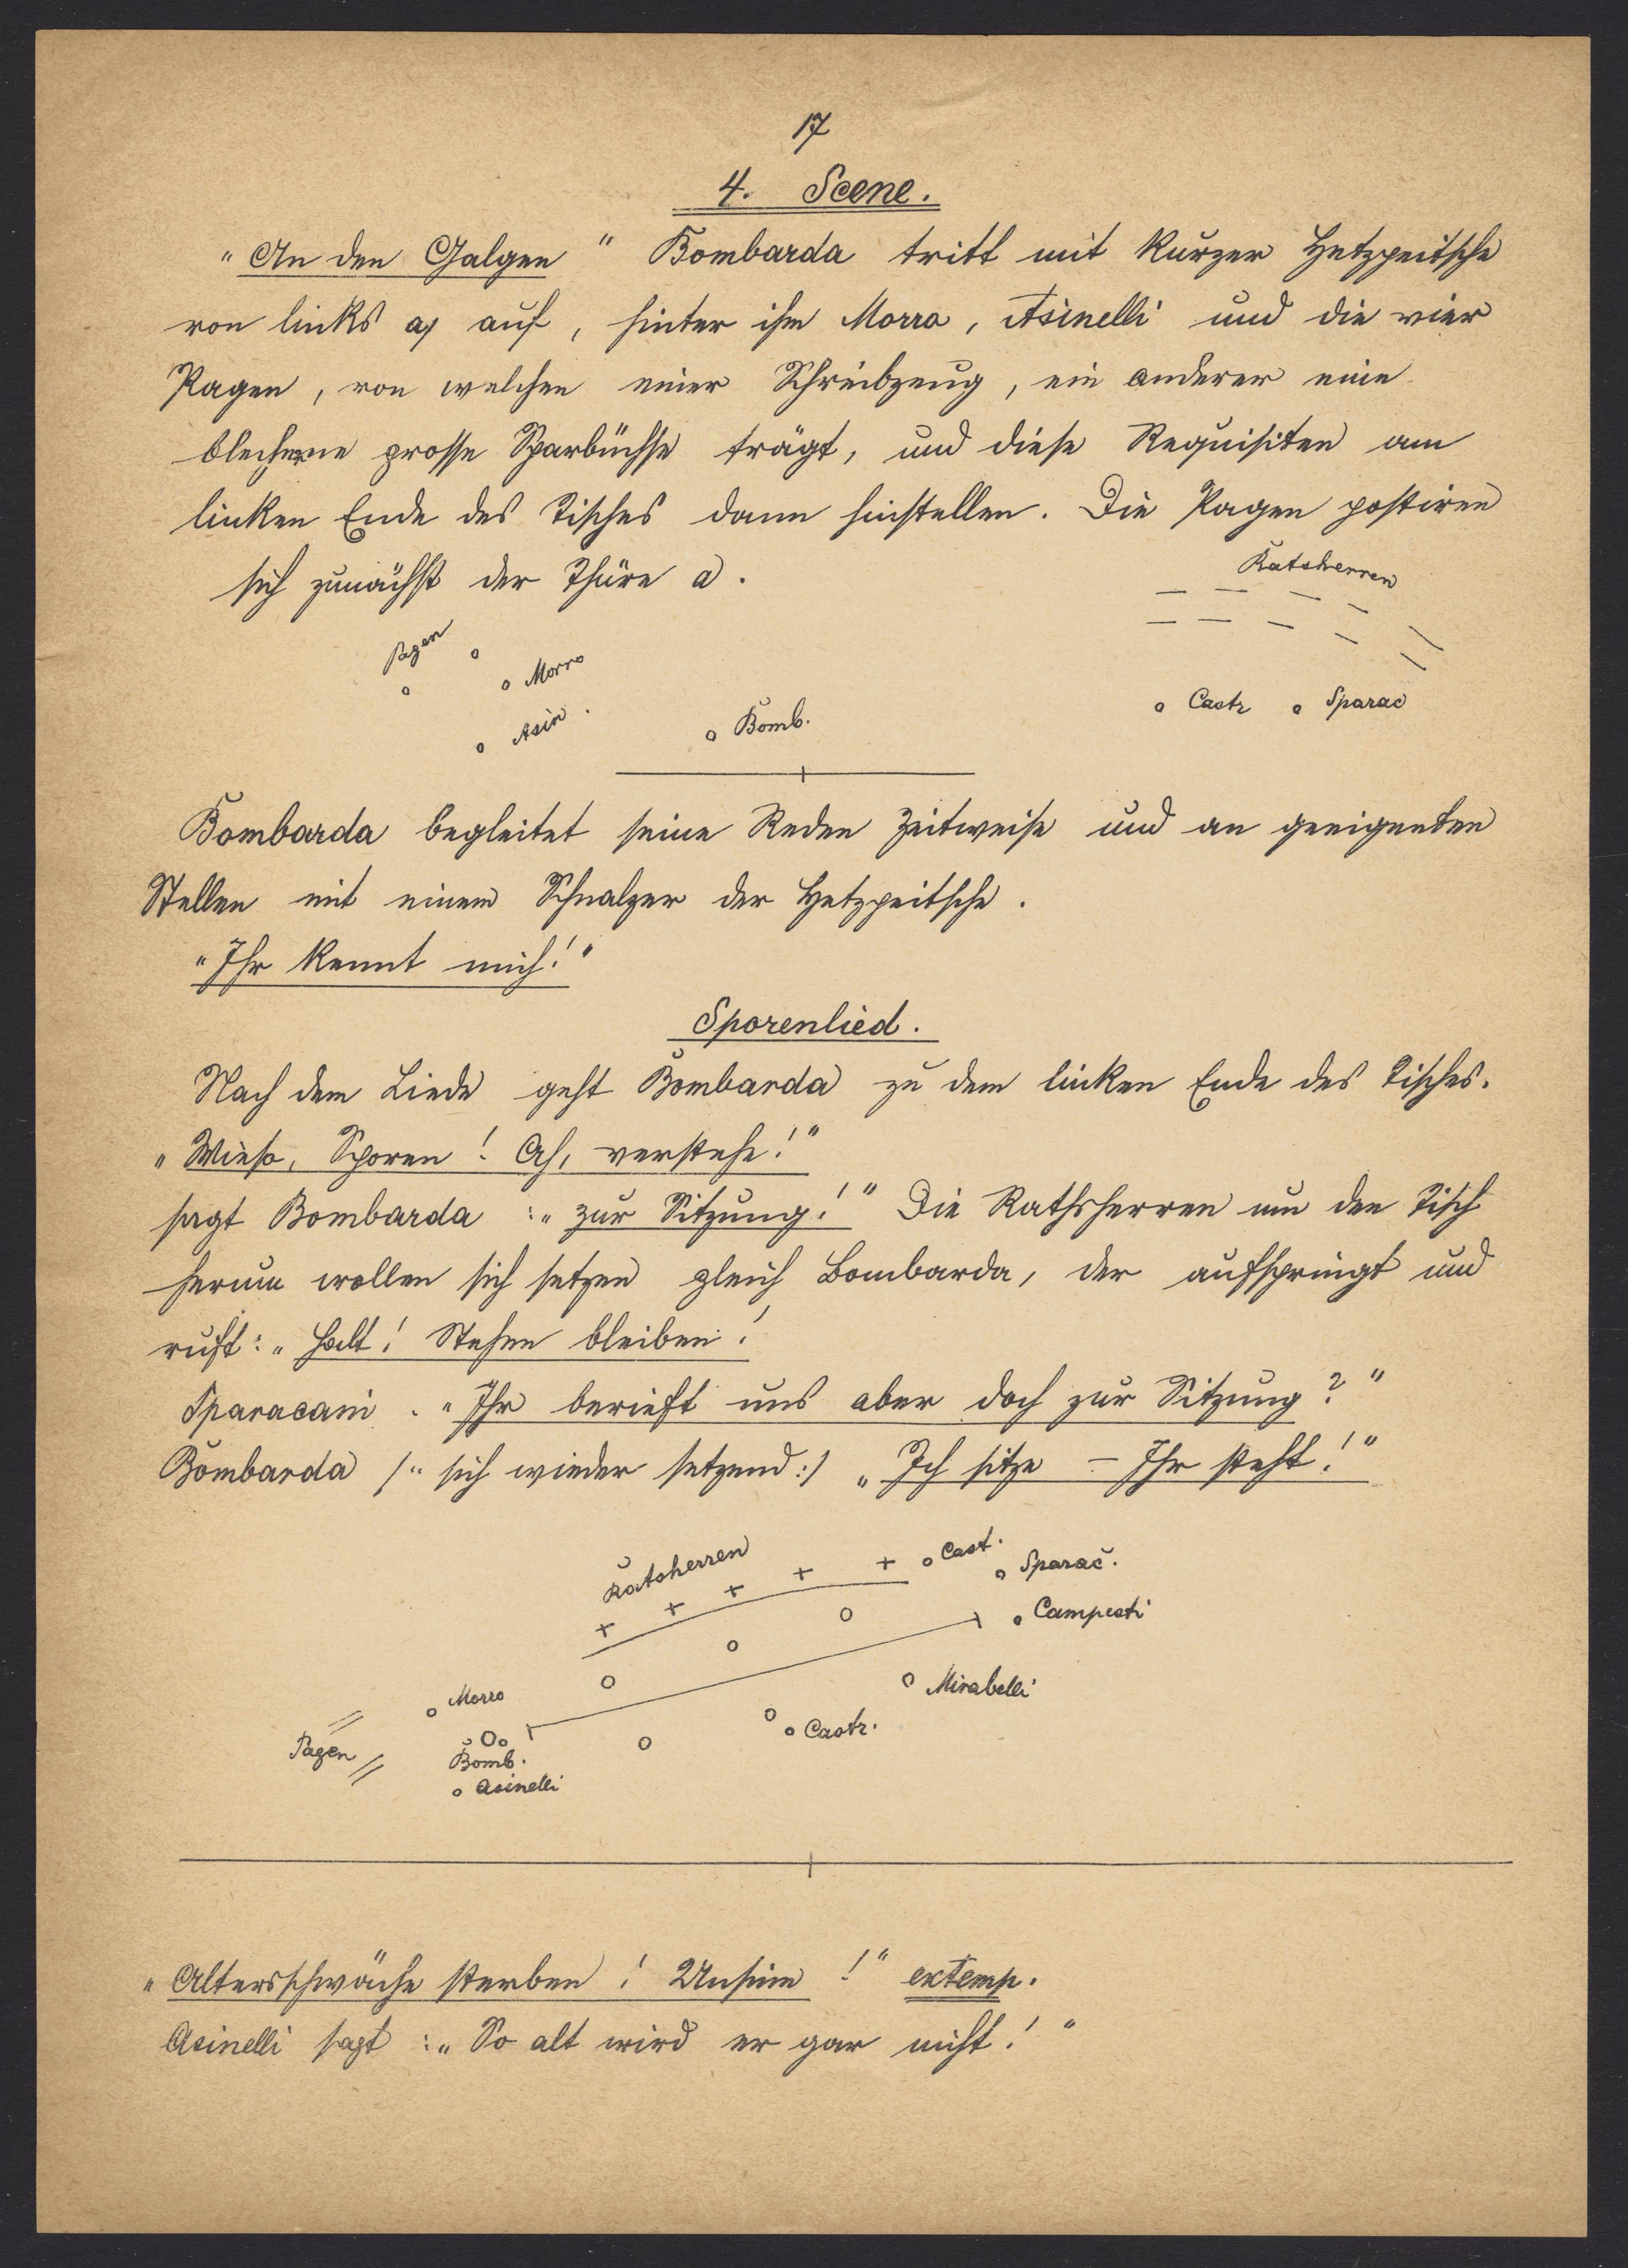 17
4. Scene.
„An den Galgen“ Bombarda tritt mit kurzer Hetzpeitsche
von links a) auf, hinter ihm Morra, Asinelli und die vier
Pagen, von welchen einer Schreibzeug, ein anderer eine
blecherne grosse Sparbüchse trägt, und diese Requisiten am
linken Ende des Tisches dann hinstellen. Die Pagen postiren
sich zunächst der Thüre a.
Ratsherren
Pagen
Morra
Asin.
Bomb.
Castr
Sparac
Bombarda begleitet seine Reden zeitweise und an geeigneten
Stellen mit einem Schnalzer der Hetzpeitsche.
„Ihr kennt mich!“
Sporenlied.
Nach dem Liede geht Bombarda zu dem linken Ende des Tisches.
„Wieso, Sporen! Ah, verstehe!“
sagt Bombarda: „zur Sitzung!“ Die Rathsherren um den Tisch
herum wollen sich setzen gleich Bombarda, der aufspringt und
ruft: „Halt! Stehen bleiben!
Sparacani. „Ihr berieft uns aber doch zur Sitzung?“
Bombarda /: sich wieder setzend :/ „Ich sitze – Ihr steht!“
Ratsherren
Cast.
Sparac.
Campesti
Mirabelli
Morra
Castr.
Pagen
Bomb.
Asinelli
„Altersschwäche sterben! Unsinn!“ extemp.
Asinelli sagt: „So alt wird er gar nicht!“